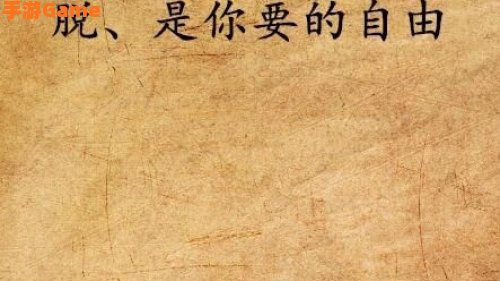 手游Game
脱、是你要的自由